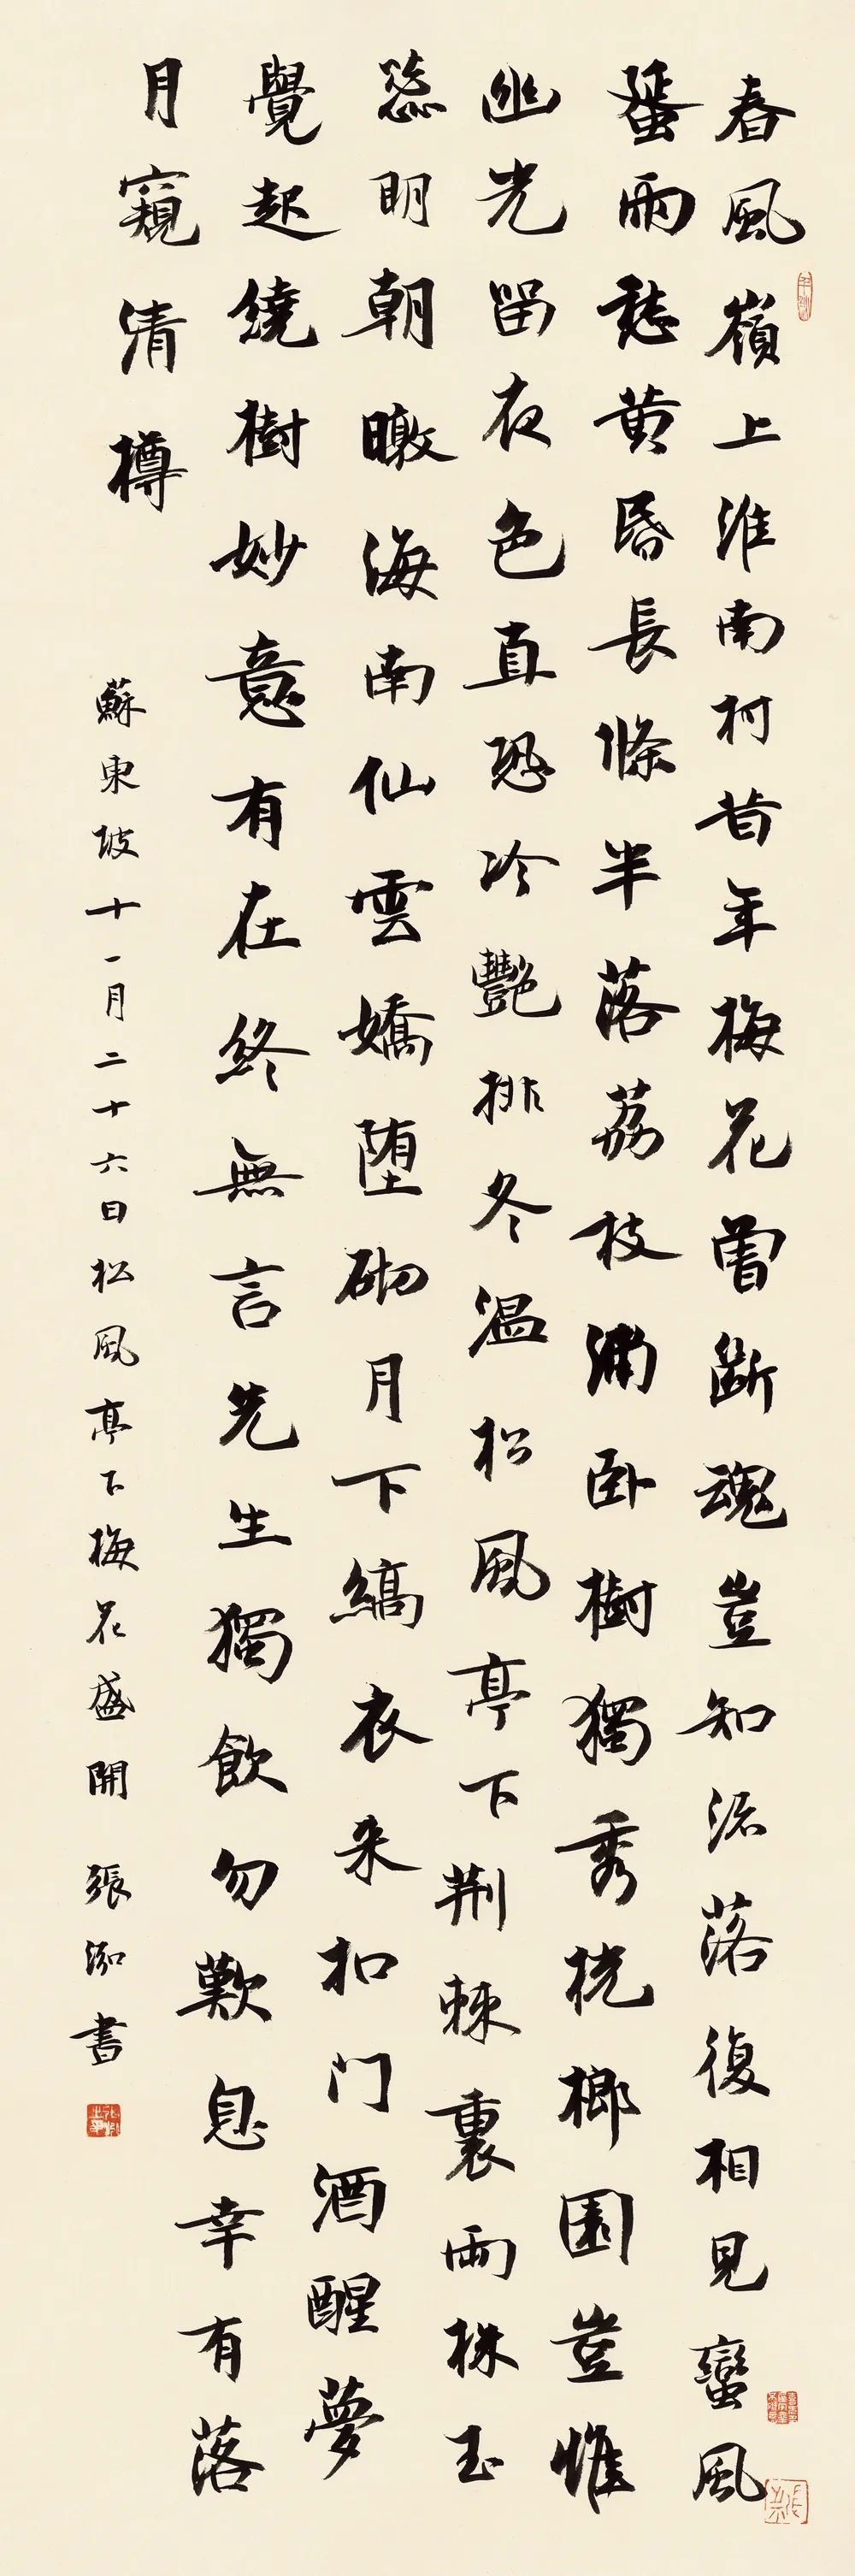 春風嶺上淮南村昔年梅花曾斷魂豈知流落復相見蠻風
蜑雨愁黃昏長條半落荔枝浦卧樹獨秀桄榔園豈惟
幽光留夜色直恐冷艷排冬温松風亭下荆棘裏兩株玉
蕊明朝暾海南仙雲嬌堕砌月下縞衣来扣门酒醒夢
覺起繞樹妙意有在終無言先生獨飲勿歎息幸有落
月窺清樽
蘇東坡十一月二十六日松風亭下梅花盛開 張泓書